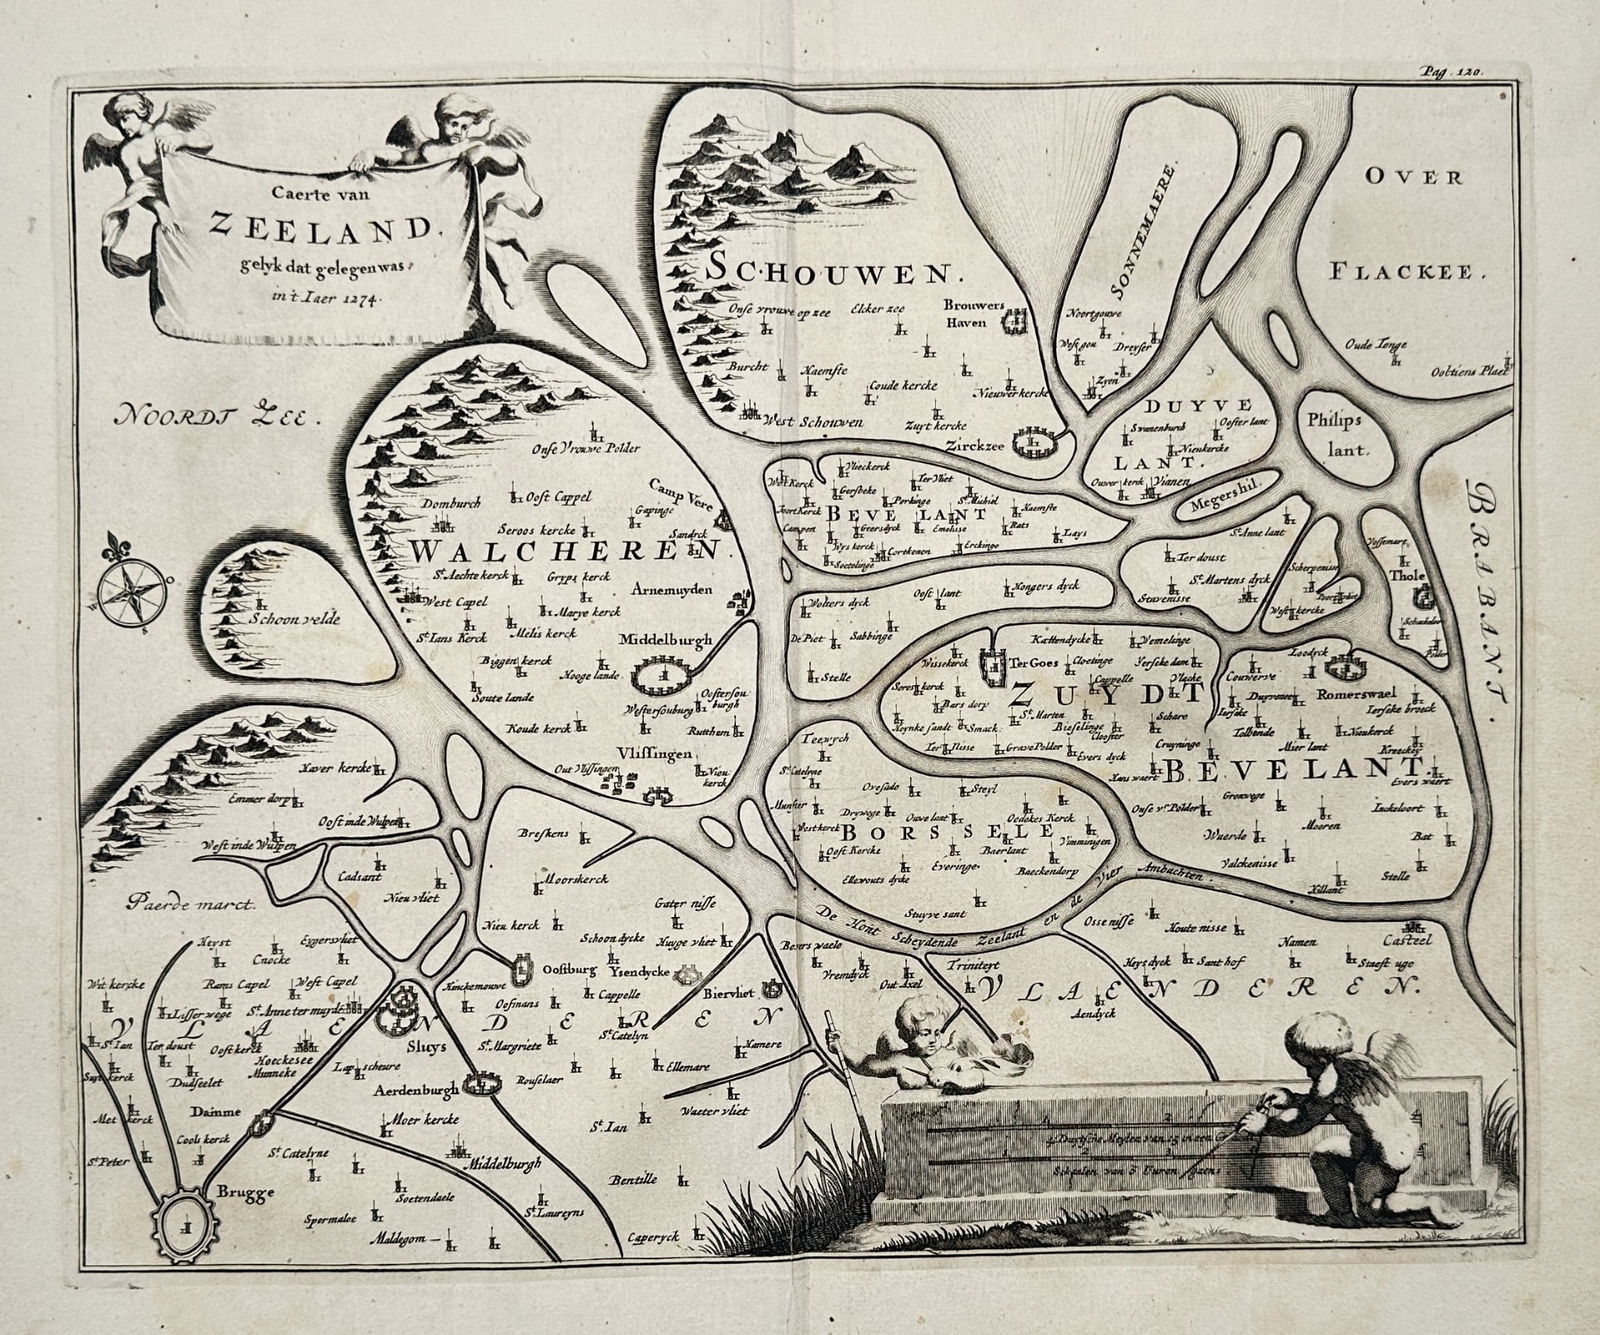 Pag. 120.
Caerte van
ZEELAND.
gelyk dat gelegen was
in't Iaer 1274.
NOORDT ZEE.
SCHOUWEN.
Onse vrouwe op zee
Elcker zee
Brouwers
Haven
Burcht
Haemste
Coude kercke
Nieuwerkercke
West Schouwen
Zuyt kercke
Zirckzee
SONNEMAERE.
Noortgouwe
West gou
Dreyser
Zyen
OVER
FLACKEE.
Oude Tonge
Ooltiens Plaet
DUYVE
LANT.
Swanenburch
Ooster lant
Nieukercke
Ouwer kerck
Vianen
Philips
lant.
Megershil.
BRABANT.
WALCHEREN.
Onse Vrouwe Polder
Domburch
Oost Cappel
Camp Vere
Gapinge
Seroos kercke
Sandick
St. Aechte kerck
Gryps kerck
Arnemuyden
West Capel
Marye kerck
St. Ians Kerck
Melis kerck
Middelburgh
Biggen kerck
Hooge lande
Soute lande
Westersouburg
Oostersou
burgh
Koude kerck
Rutthem
Vlissingen
Out Vlissingen
Nieu
kerck
Schoonvelde
BEVELANT
West Kerck
Vlieckerck
Gersbeke
Ter Vliet
Perkinge
St. Michiel
Haemste
Noortkerck
Campen
Geersdyck
Emelisse
Rats
Lays
Wys kerck
Cortkenen
Erckinge
Soetelinge
Wolters dyck
Oost lant
Hongers dyck
De Piet
Sabbinge
Stelle
St. Anne lant
Ter doust
St. Martens dyck
Stavenisse
Scherpenisse
Poortvliet
West kercke
Vossemare
Thole
Schackeloo
Polder
ZUYDT
BEVELANT.
Kattendycke
Wemelinge
Wissekerck
Ter Goes
Cloetinge
Yerseke dam
Cappelle
Vlacke
Couwerve
Loodyck
Romerswael
Bars dorp
St. Marten
Smack
Bieselinge
Clooster
Schare
Duyvenee
Ierseke
Ierseke broeck
Tolsende
Nieukerck
Ter Nisse
Grave Polder
Evers dyck
Cruyninge
Mier lant
Kreecke
Hans waert
Evers waert
Onse vr. Polder
Gronwege
Inckeloort
Moeren
Waerde
Bat
Valckenisse
Stelle
Hillant
Teewych
St. Catelyne
BORSSELE
Ovesade
Steyl
Munster
Drywege
Ouwe lant
Oedekes Kerck
Westkerck
Vimmingen
Oost Kercke
Everinge
Baerlant
Baeckendorp
Ellewouts dycke
Stuyve sant
De Hont Scheydende Zeelant en de Vier Ambachten
Xaver kercke
Emmer dorp
Oost inde Wulpen
West inde Wulpen
Paerde marct.
Cadsant
Nieu vliet
Breskens
Moorskerck
Nieu kerck
Gater nisse
Schoon dycke
Huyge vliet
Oostburg
Ysendycke
Biervliet
Nanckemouwe
Oosmans
Cappelle
Heyst
Eygersvliet
Cnocke
Wit kercke
Rams Capel
West Capel
Lisser wege
St. Anne ter muyde
VLAENDEREN
St. Ian
Ter doust
Oostkerck
Hoeckesee
Munneke
Sluys
St. Margriete
St. Catelyn
Suyt kerck
Dudseelet
Lap scheure
Rouselaer
Ellemare
Hamere
Aerdenburgh
Damme
Moer kercke
Waeter vliet
Met kerck
Cools kerck
St. Ian
St. Peter
St. Catelyne
Middelburgh
Brugge
Soetendaele
Bentille
Spermaloe
St. Laureyns
Maldegom
Caperyck
Besers waele
Vremdyck
Out Axel
Triniteyt
VLAENDEREN.
Aendyck
Osse nisse
Houte nisse
Heys dyck
Sant hof
Namen
Casteel
Staest uge
1 2
4 Duytsche Meylen van 15 in een
Schaalen van 5 Uuren gaens